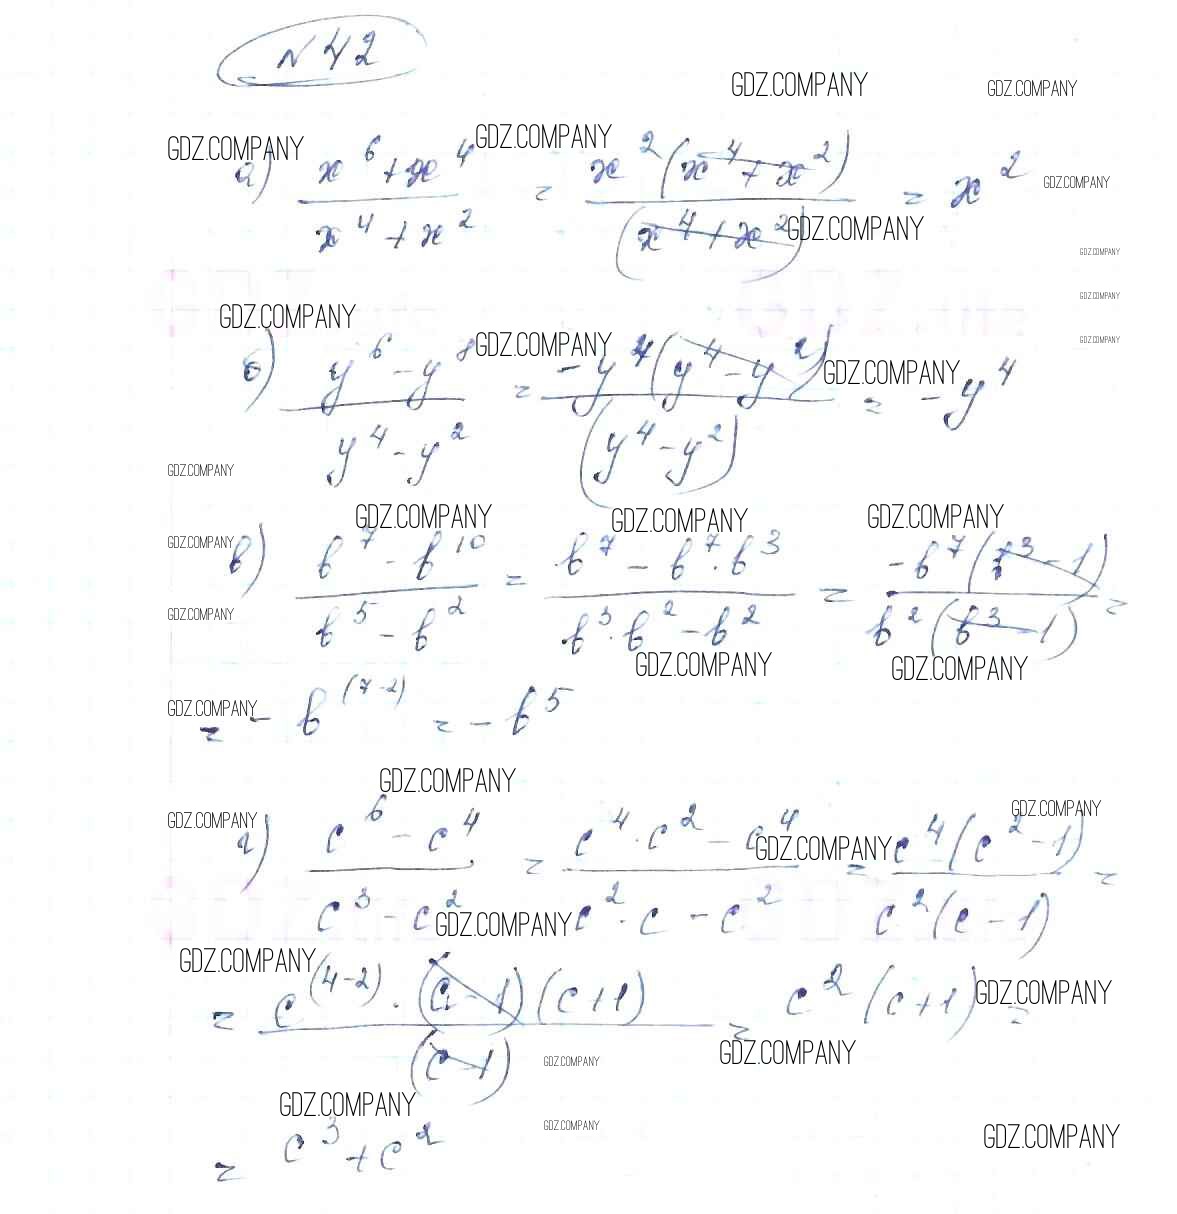 N 42
GDZ.COMPANY GDZ.COMPANY
GDZ.COMPANY GDZ.COMPANY
а) (x^6 + x^4)/(x^4 + x^2) = x^2(x^4 + x^2)/(x^4 + x^2) = x^2 GDZ.COMPANY
GDZ.COMPANY
GDZ.COMPANY
GDZ.COMPANY
GDZ.COMPANY
GDZ.COMPANY GDZ.COMPANY
б) (y^6 - y^8)/(y^4 - y^2) = -y^4(y^4 - y^2)/(y^4 - y^2) = -y^4
GDZ.COMPANY
GDZ.COMPANY
GDZ.COMPANY GDZ.COMPANY GDZ.COMPANY
GDZ.COMPANY
в) (b^7 - b^10)/(b^5 - b^2) = (b^7 - b^7·b^3)/(b^3·b^2 - b^2) = -b^7(b^3 - 1)/(b^2(b^3 - 1)) =
GDZ.COMPANY
GDZ.COMPANY GDZ.COMPANY
GDZ.COMPANY
= -b^(7-2) = -b^5
GDZ.COMPANY
GDZ.COMPANY GDZ.COMPANY
г) (c^6 - c^4)/(c^3 - c^2) = (c^4·c^2 - c^4)/(c^2·c - c^2) = c^4(c^2 - 1)/(c^2(c - 1)) =
GDZ.COMPANY
GDZ.COMPANY
GDZ.COMPANY
= c^(4-2)·(c - 1)(c + 1)/(c - 1) = c^2(c + 1) =
GDZ.COMPANY
GDZ.COMPANY GDZ.COMPANY
GDZ.COMPANY
GDZ.COMPANY GDZ.COMPANY
= c^3 + c^2